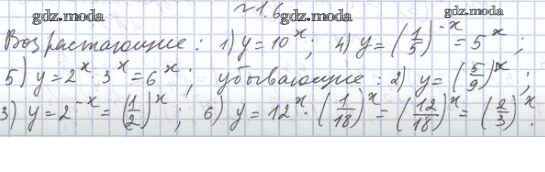 gdz.moda gdz.moda
№1.6
Возрастающие: 1) y = 10^x; 4) y = (1/5)^-x = 5^x;
5) y = 2^x · 3^x = 6^x; убывающие: 2) y = (5/9)^x;
3) y = 2^-x = (1/2)^x; 6) y = 12^x · (1/18)^x = (12/18)^x = (2/3)^x.